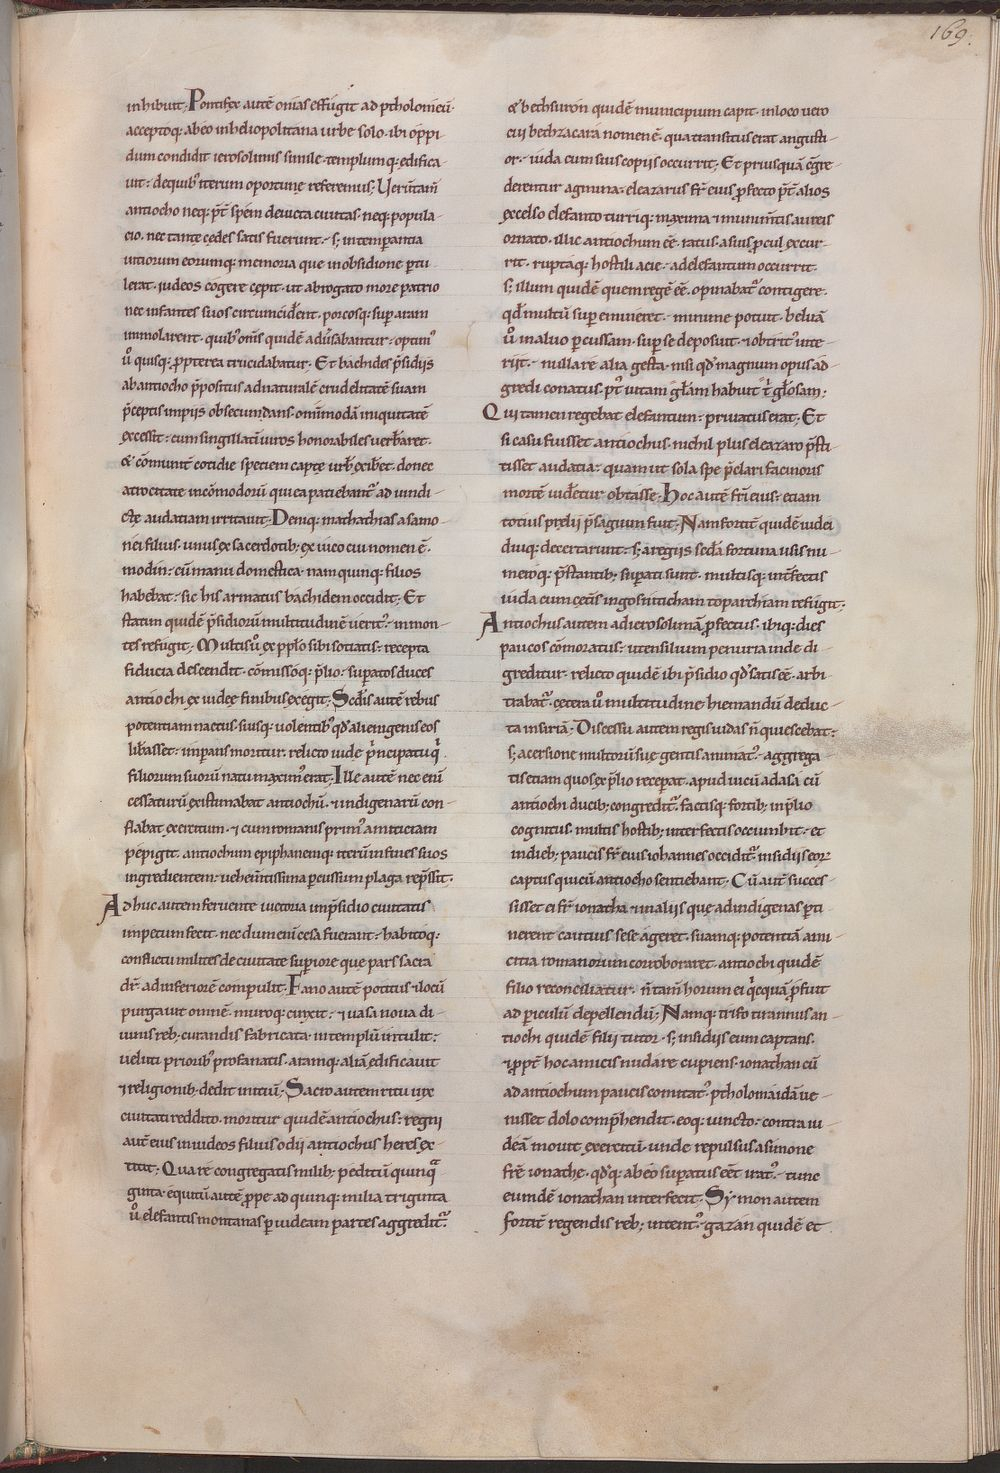 169.
inhibuit; Pontifex autē onias effugit ad ptholomeū
acceptoq; ab eo in heliopolitana urbe solo. ibi oppi
dum condidit ierosolimis simile. templumq; edifica-
uit: de quib' iterum oportune referemus; Uerūtam̄
antiocho neq; p̄t spēm deuicta ciuitas. neq; popula-
cio. nec tantę cędes satis fuerunt. s; intemperantia
uitiorum eorumq; memoria que in obsidione ptu-
lerat. iudeos cogere cepit. ut abrogato more patrio
nec infantes suos circumcid̄ent. porcosq; sup aram
immolarent. quib' om̄s quidē adūsabantur. optim'
u̅ quisq; ppterea trucidabatur. Et bachides p̄sidiis
ab antiocho p̄positus ad naturalē crudelitatē suam
p̄ceptis impiis obsecundans. omīmodā iniquitatē
excessit: cum singillatī uiros honorabiles uerb̄aret.
& cōmunit̄ cotidie speciem captę urb̄ exib̄et. donec
atrocitate incōmodorū qui ea patiebant̄ ad uindi-
ctę audatiam irritauit; Deniq; mathathias asamo-
nei filius. unus ex sacerdotib; ex uico cui nomen ē.
modin: cū manu domestica. nam quinq; filios
habebat: sic his armatus bachidem occidit; Et
statim quidē p̄sidiorū multitudinē uerit' in mon-
tes refugit; Multis u̅ ex pp̄lo sibi sotiatis: recepta
fiducia descendit. cōmissoq; p̄lio: supatos duces
antiochi ex iudee finibus exegit; Sedīs autē rebus
potentiam nactus. suisq; uolentib' qd̄ alienigenis eos
lib̄asset: imperans moritur. relicto iude p̄ncipatu q̄
filiorum suorū natu maxim' erat; Ille autē nec enī
cessaturū existimabat antiochū. & indigenarū con-
flabat exercitum. & cum romanis prim' amiticiam
pepigit. antiochum epiphanemq; iterū in fines suos
ingredientem: uehem̄tissima pcussum plaga rep̄ssit.
Adhuc autem feruente uictoria in p̄sidio ciuitatis
impetum fecit. nec dum enī cesa fuerant: habitoq;
conflictu milites de ciuitate supiore que pars sacra
dr̄. ad inferiorē compulit. Fano autē potitus. locū
purgauit omnē. muroq; cinxit: & uasa noua di-
uinis reb; curandis fabricata. in templū intulit:
ueluti priorib' profanatis. aramq; aliā edificauit
& religionib; dedit initiū; Sacro autem ritu uix
ciuitati reddito. moritur quidē antiochus: regni
aut̄ eius in iudeos filius odii antiochus heres ex-
titit; Qua re congregatis milib; peditū quinq̄
ginta. equitū autē ppe ad quinq; milia triginta
u̅ elefantis montanas p iudeam partes aggredit̄.
& bethsuron quidē municipium capit. in loco uero
cui bethzacara nomen ē. qua transitus erat angusti-
or. iuda cum suis copiis occurrit; Et priusquā c̄gre-
derentur agmina. eleazarus fr̄ eius pfecto p̄t alios
excelso elefanto turriq; maxima & munim̄tis aureis
ornato. illic antiochum eē ratus. a suis pcul excur-
rit. ruptaq; hostili acie. ad elefantum occurrit.
s; illum quidē quem regē eē. opinabat̄ contigere.
qd̄ multū sup emineret. minime potuit. beluā
u̅ in aluo pcussam. sup se deposuit. & obtrit' inte-
riit. nulla re alia gesta. nisi qd̄ magnum opus ad-
gredi conatus. p't uitam gl̄am habuit gl̄osam;
Qui tamen regebat elefantum: priuatus erat; Et
si casu fuisset antiochus. nichil plus eleazaro p̄sti-
tisset audatia: quam ut sola spe p̄clari facinoris
mortē uid̄etur obtasse. Hoc autē fr̄i eius: etiam
totius prelii p̄sagium fuit; Nam fortit̄ quidē iudei
diuq; decertarunt: s; a regiis sed̄a fortuna usis nu-
meroq; p̄stantib; supati sunt. multisq; int̄fectis
iuda cum cęt̄is in gosniticham toparchiam refugit;
Antiochus autem ad ierosolimā pfectus. ibiq; dies
paucos cōmoratus: utensilium penuria inde di-
greditur. relicto quidē ibi p̄sidio qd̄ satis eē. arbi-
trabat̄. cetera u̅ multitudine hiemandū deduc-
ta in siriā. Discessu autem regis iudas n̄ quiescebat:
s; acersione multorū sue gentis animat'. aggrega-
tis etiam quos ex p̄lio receperat. apud uicū adasa cū
antiochi ducib; congredit̄. factisq; fortib; in p̄lio
cognitus. multis hostib; interfectis occumbit. et
in dieb; paucis fr̄ eius iohannes occidit̄. insidiis eoꝝ
captus qui cū antiocho sentiebant. Cū aut̄ succes-
sisset ei fr̄ ionatha & in aliis que ad indigenas pti-
nerent cautius sese ageret. suamq; potentiā ami-
citia romanorum corroboraret. antiochi quidē
filio reconciliatur. n̄ tam̄ horum ei q̄cquā p̄fuit
ad piculū depellendū; Namq; trifo tirannus an-
tiochi quidē filii tutor. s; insidiis eum captans.
& ppt̄ hoc amicis nudare cupiens. ionathan cū
ad antiochum paucis comitat'. ptholomaidā ue-
nisset dolo comp̄hendit. eoq; uincto: contra iu-
deā mouit exercitū. unde repulsus a simone
fr̄e ionathe. qd̄q; ab eo supatus eēt irat'. tunc
eundē ionathan interfecit. Symon autem
fortit̄ regendis reb; intent'. gazan quidē et